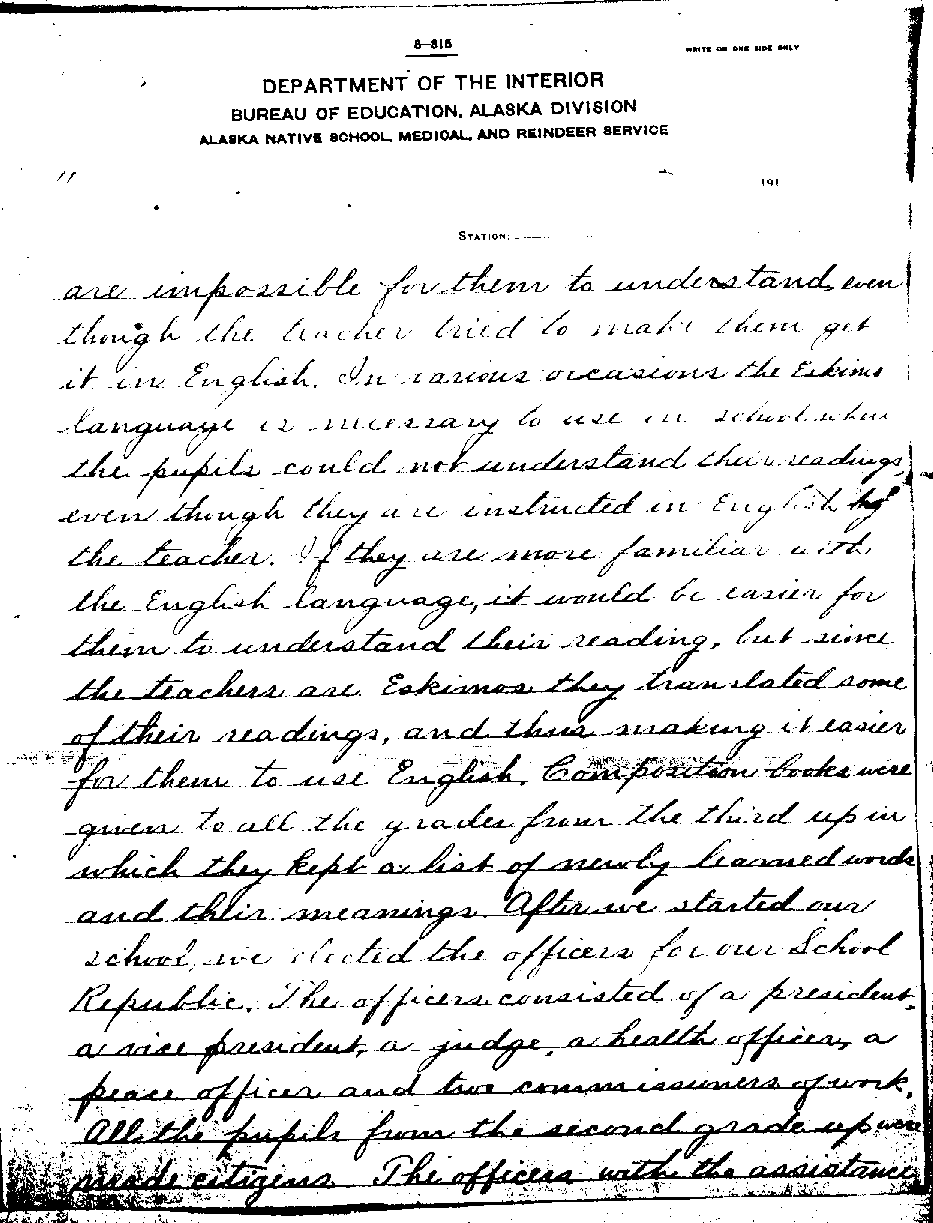 8—815
WRITE ON ONE SIDE ONLY
DEPARTMENT OF THE INTERIOR
BUREAU OF EDUCATION, ALASKA DIVISION
ALASKA NATIVE SCHOOL, MEDICAL, AND REINDEER SERVICE
11
191
STATION:
are impossible for them to understand, even
though the teacher tried to make them get
it in English. In various occasions the Eskimo
language is necessary to use in school when
the pupils could not understand their readings,
even though they are instructed in English by
the teacher. If they are more familiar with
the English language, it would be easier for
them to understand their reading, but since
the teachers are Eskimos they translated some
of their readings, and thus making it easier
for them to use English. Composition books were
given to all the grades from the third up in
which they kept a list of newly learned words
and their meanings. After we started our
school, we elected the officers for our School
Republic. The officers consisted of a president,
a vice president, a judge, a health officer, a
peace officer and two commissioners of work.
All the pupils from the second grade up were
made citizens. The officers with the assistance